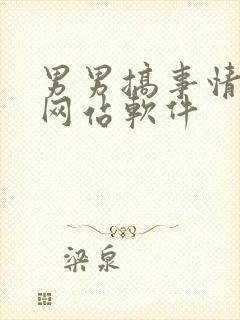 男男搞事情
网佔軟件
梁泉